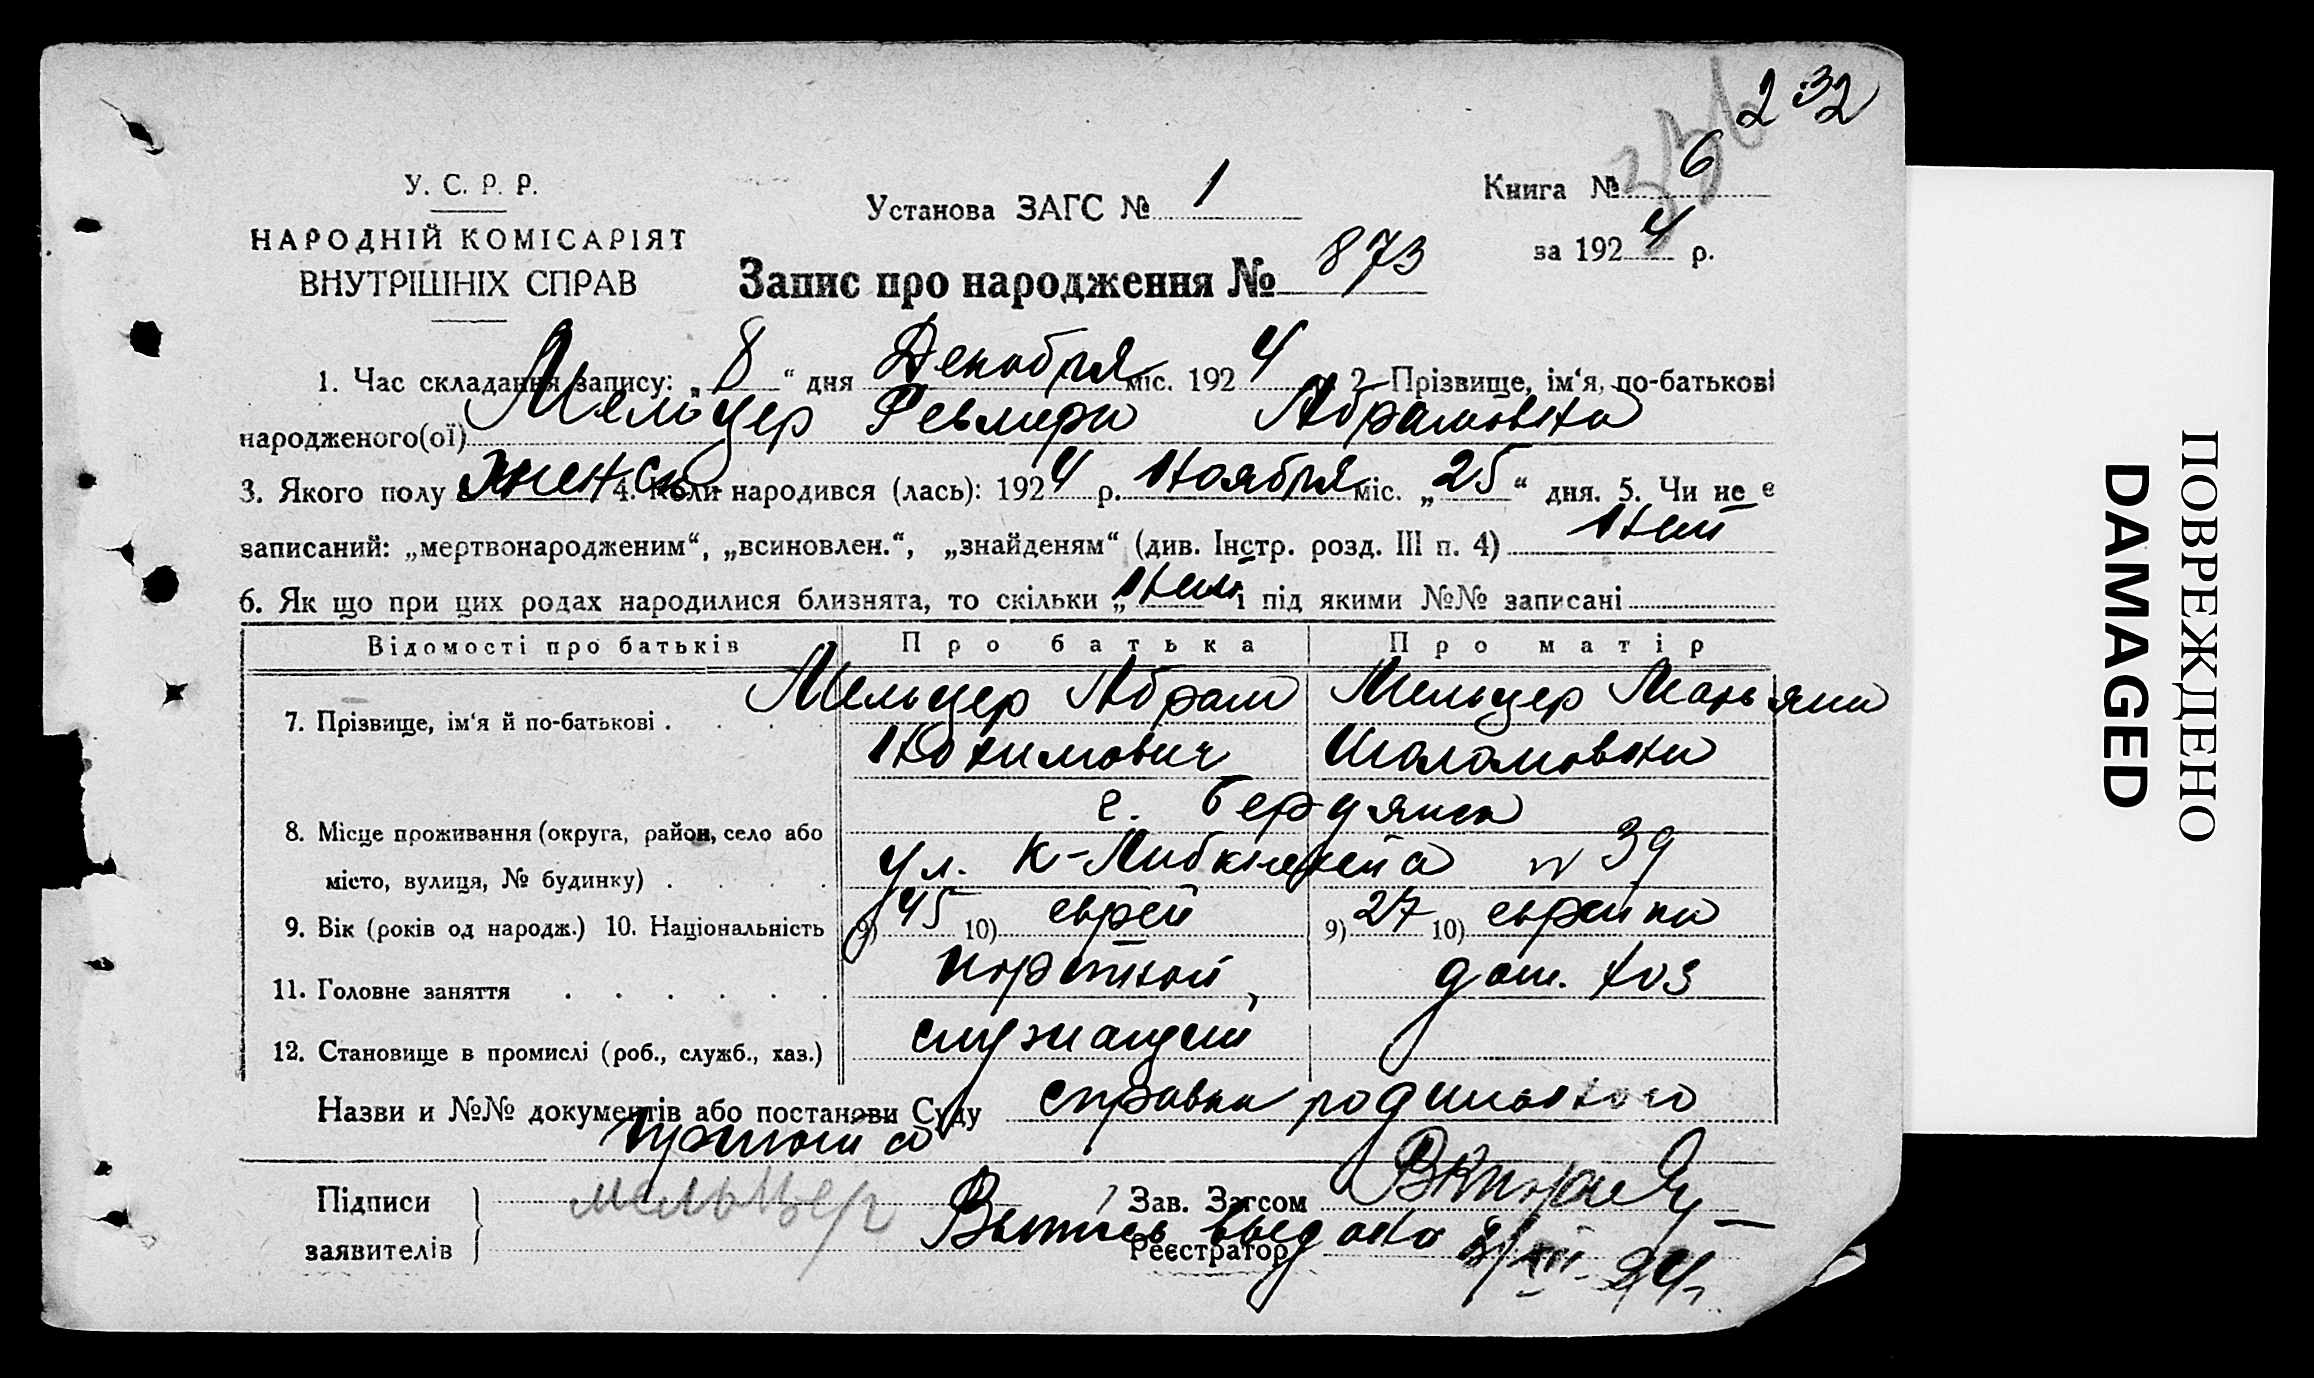 232
У. С. Р. Р.
НАРОДНІЙ КОМІСАРІЯТ
ВНУТРІШНІХ СПРАВ
Установа ЗАГС № 1
Книга № 6
за 1924 р.
Запис про народження № 873
1. Час складання запису: „8“ дня Декабря міс. 1924 2. Прізвище, ім‘я, по-батькові
народженого(ої) Мельцер Ревмира Абрамовна
3. Якого полу женск. 4. Коли народився (лась): 1924 р. Ноября міс. „25“ дня. 5. Чи не є
записаний: „мертвонародженим“, „всиновлен.“, „знайденям“ (див. Інстр. розд. III п. 4) Нет
6. Як що при цих родах народилися близнята, то скільки „Нет і під якими №№ записані
Відомості про батьків Про батька Про матір
7. Прізвище, ім‘я й по-батькові . Мельцер Абрам Мельцер Марьяна
Нохимович Шоломовна
г. Бердянск
8. Місце проживання (округа, район, село або
місто, вулиця, № будинку) . ул. К-Либкнехта № 39
9. Вік (років од народж.) 10. Національність 9) 45 10) еврей 9) 27 10) еврейка
11. Головне заняття портной, дом. хоз
12. Становище в промислі (роб., служб., хаз.) служащий
Назви и №№ документів або постанови Суду справка родильного
приюта
Підписи Мельцер Зав. Загсом
заявителів Реєстратор
Выпись выдана 8/XII-24г.
ПОВРЕЖДЕНО
DAMAGED